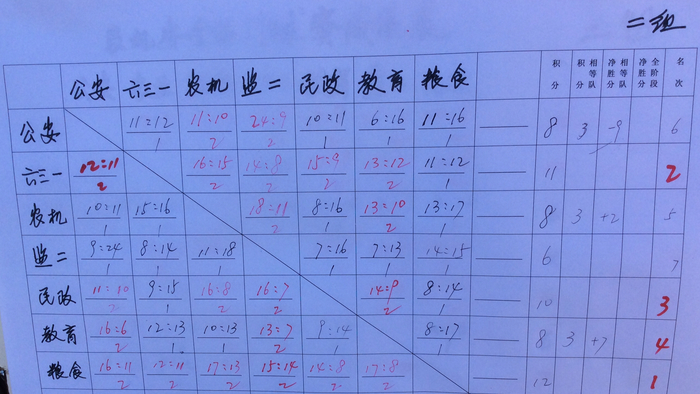 二组
公安 六三一 农机 监二 民政 教育 粮食 积分 相等队积分 相等队净胜分 全阶段净胜分 名次
公安 11:12/1 11:10/2 24:9/2 10:11/1 6:16/1 11:16/1 8 3 -9 6
六三一 12:11/2 16:15/2 14:8/2 15:9/2 13:12/2 11:12/1 11 2
农机 10:11/1 15:16/1 18:11/2 8:16/1 13:10/2 13:17/1 8 3 +2 5
监二 9:24/1 8:14/1 11:18/1 7:16/1 7:13/1 14:15/1 6 7
民政 11:10/2 9:15/1 16:8/2 16:7/2 14:9/2 8:14/1 10 3
教育 16:6/2 12:13/1 10:13/1 13:7/2 9:14/1 8:17/1 8 3 +7 4
粮食 16:11/2 12:11/2 17:13/2 15:14/2 14:8/2 17:8/2 12 1